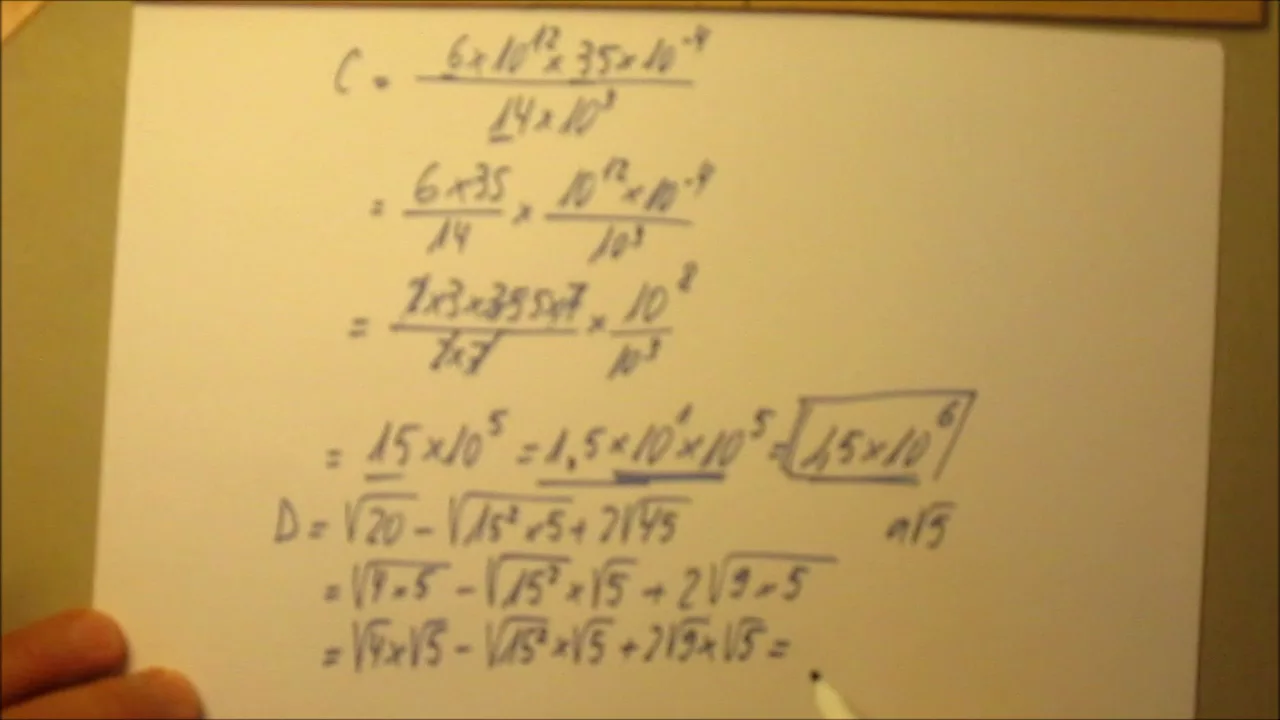 C = 6×10^12 × 35×10^-4 / 14×10^3
= 6×35 / 14 × 10^12×10^-4 / 10^3
= 2×3×5×7 / 2×7 × 10^8 / 10^3
= 15×10^5 = 1,5×10^1×10^5 = 1,5×10^6
D = √20 - √15²×5 + 2√45 a√5
= √4×5 - √15²×√5 + 2√9×5
= √4×√5 - √15²×√5 + 2√9×√5 =